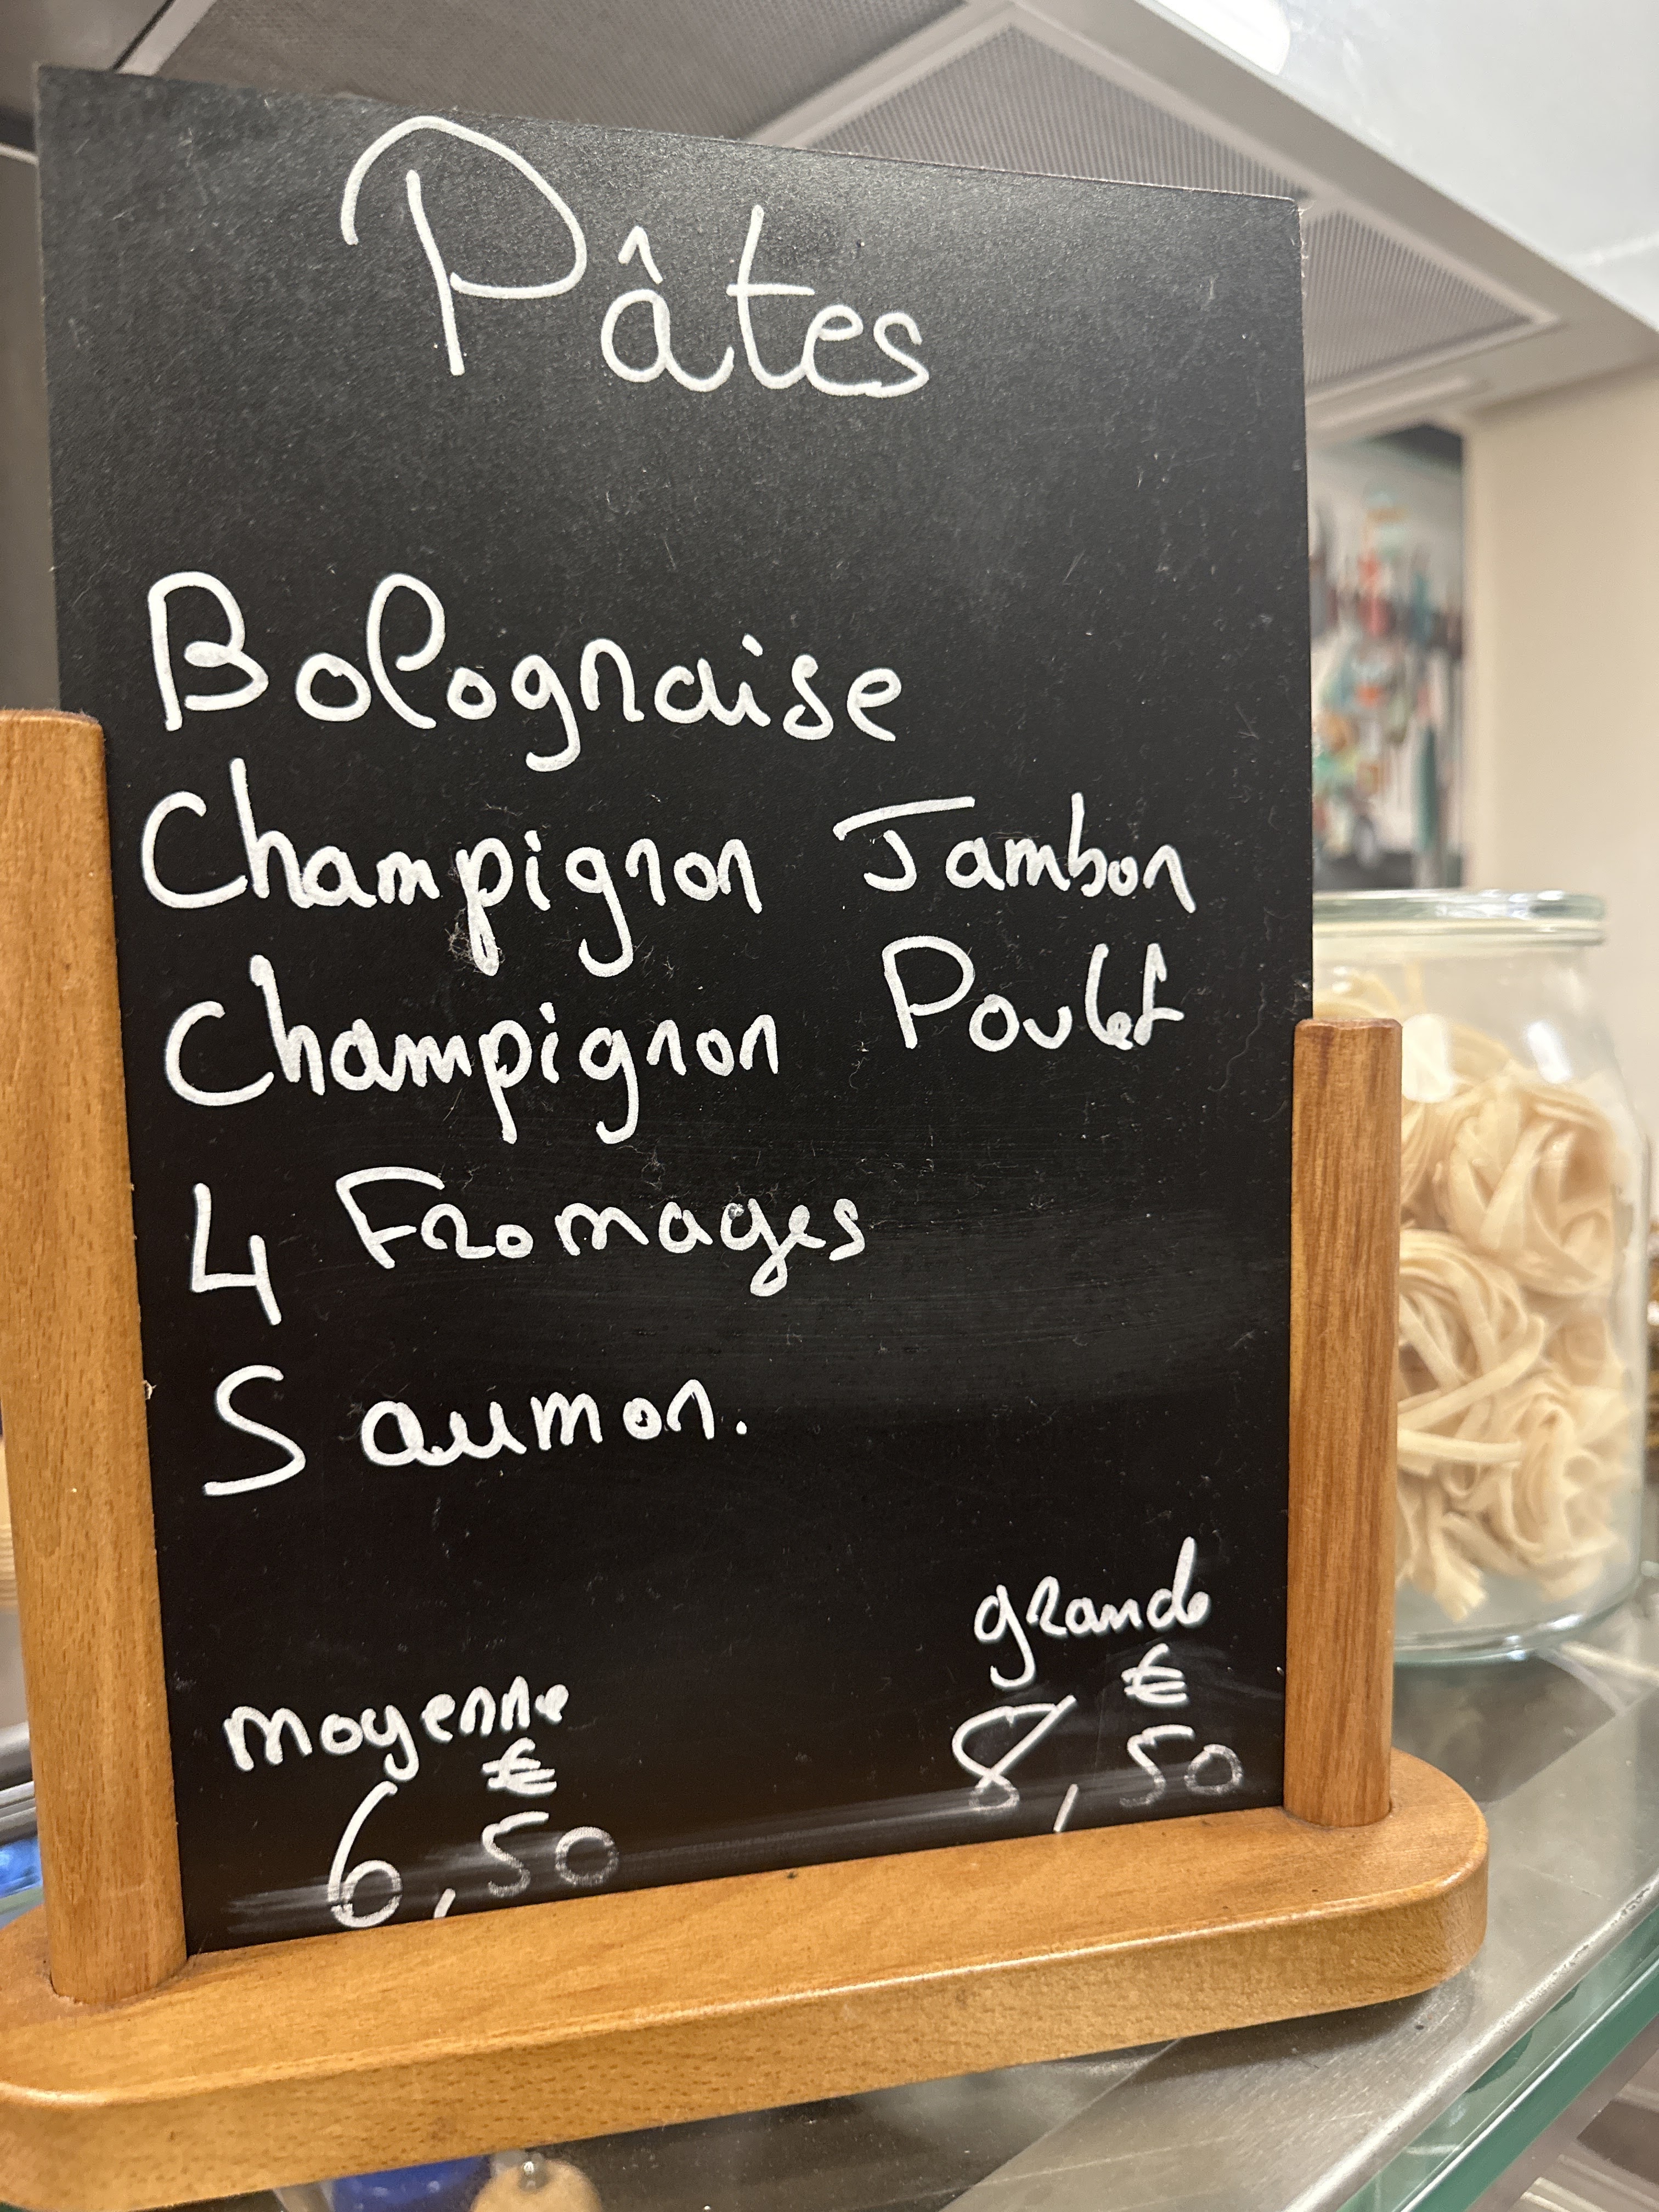 Pâtes
Bolognaise
Champignon Jambon
Champignon Poulet
4 Fromages
Saumon.
moyenne
€
6,50
grande
€
8,50